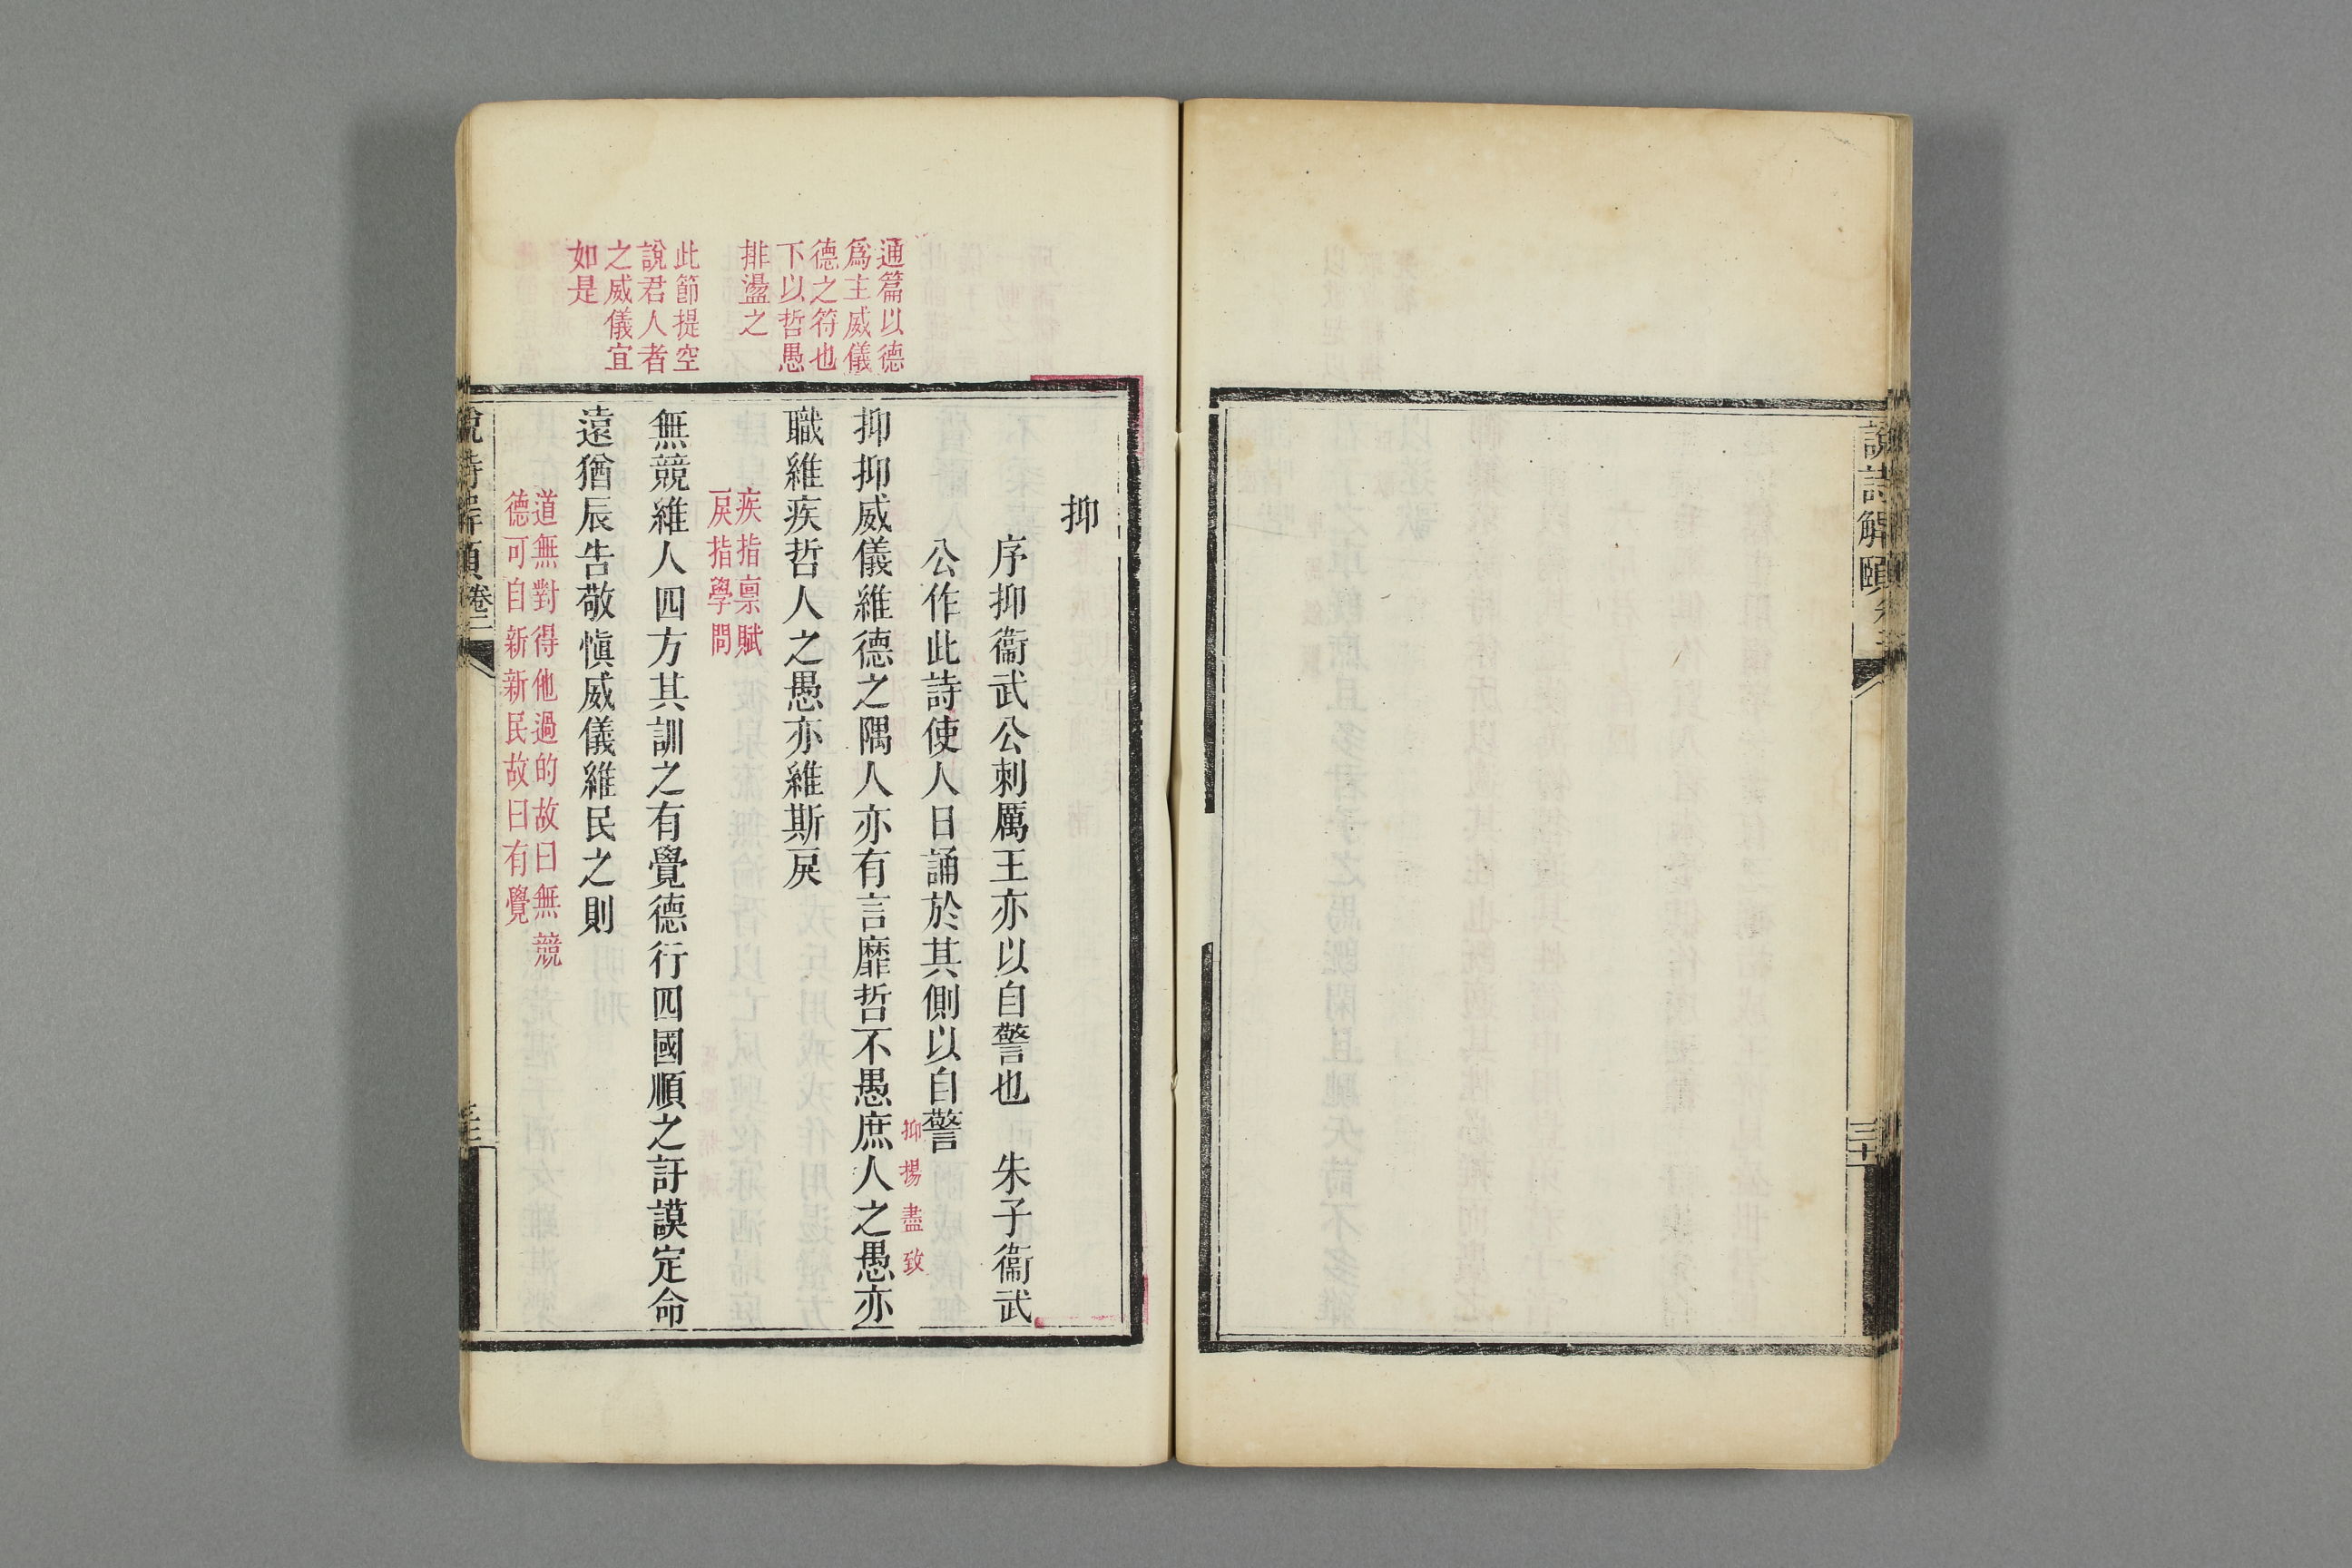 說詩解頤
三十
通篇以德
爲主威儀
德之符也
下以哲愚
排盪之
此節提空
說君人者
之威儀宜
如是
抑
序抑衞武公刺厲王亦以自警也 朱子衞武
公作此詩使人日誦於其側以自警
抑揚盡致
抑抑威儀維德之隅人亦有言靡哲不愚庶人之愚亦
職維疾哲人之愚亦維斯戾
疾指禀賦
戾指學問
無競維人四方其訓之有覺德行四國順之訏謨定命
遠猶辰告敬愼威儀維民之則
道無對得他過的故曰無競
德可自新新民故曰有覺
說詩解頤卷二